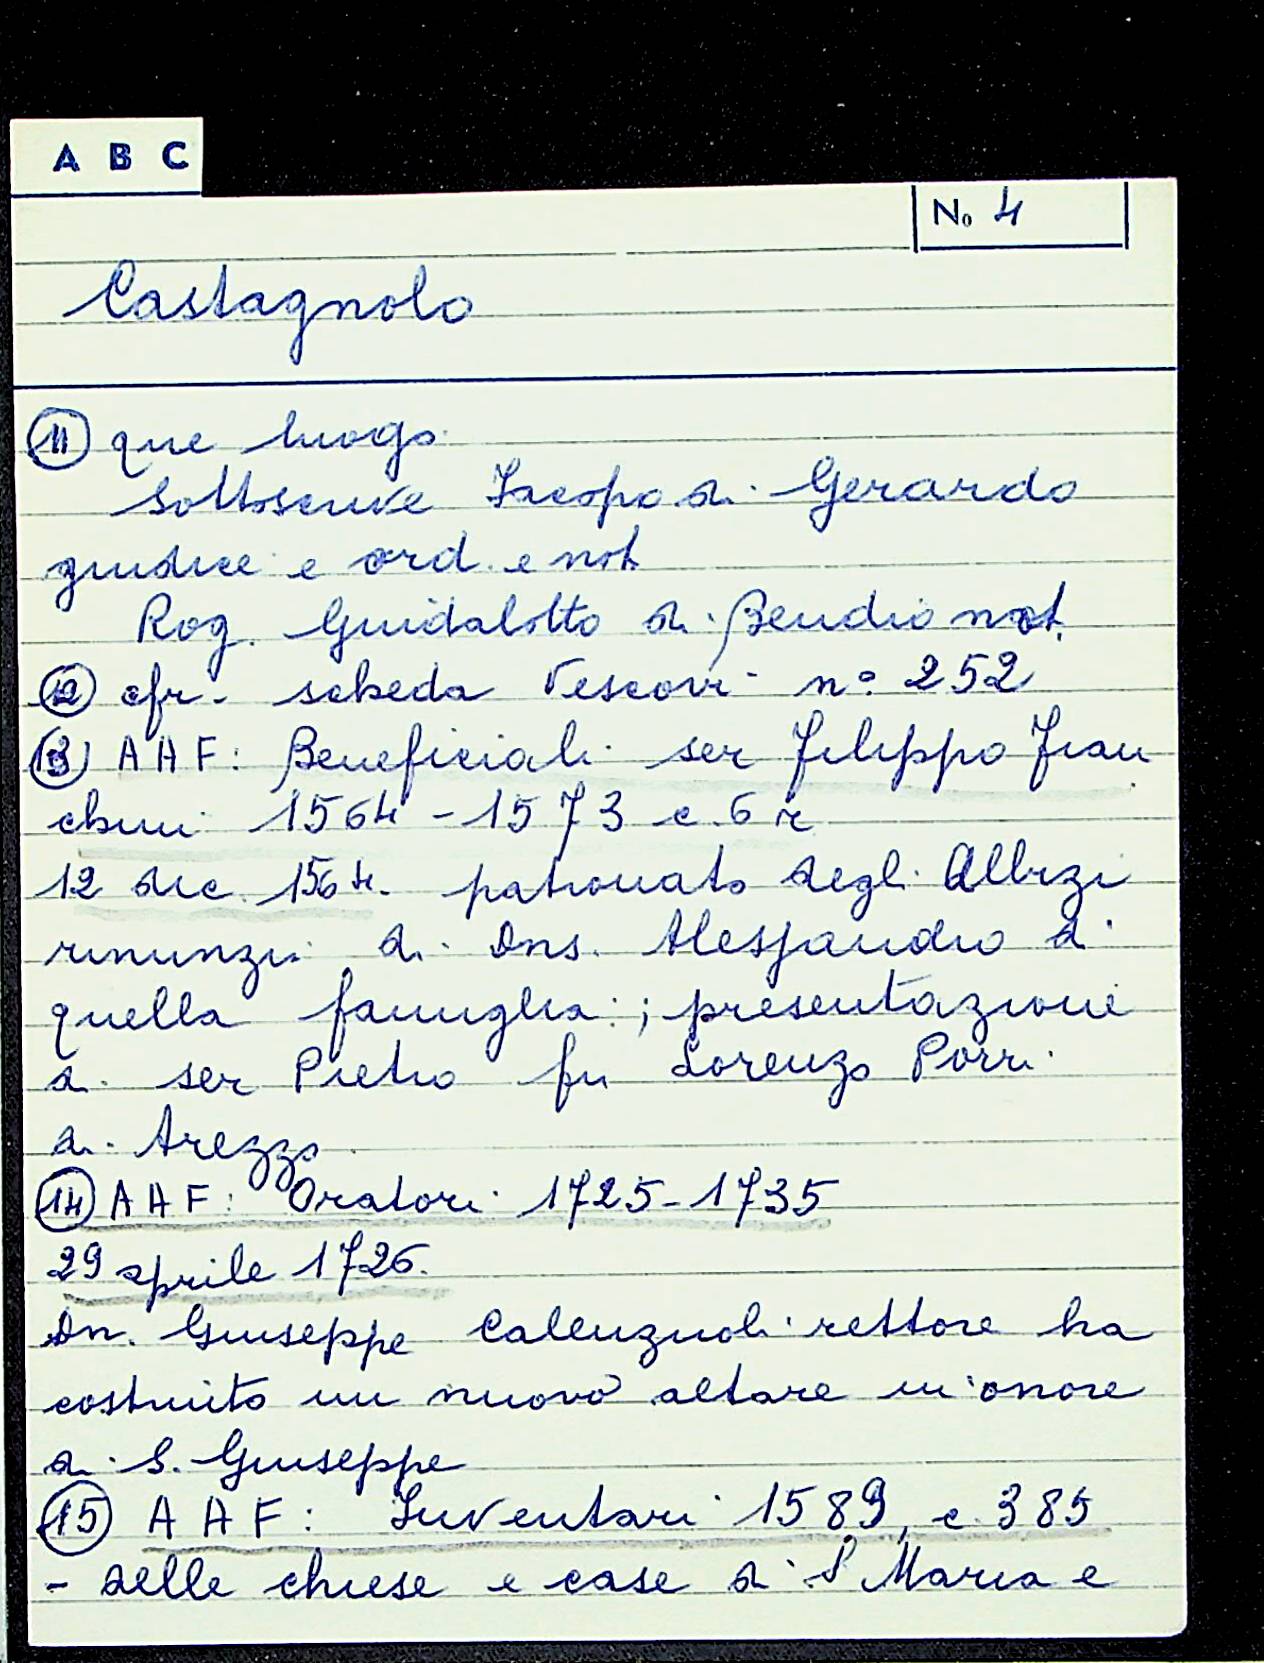 A B C
No 4
Castagnolo
11 que luogo.
sottoscrive Jacopo di Gerardo
giudice e ord. e not.
Rog. Guidalotto di not.
12 cfr. scheda Vescovi n° 252
13 AAF: Beneficiali ser Filippo Fran
chini 1564-1573 c. 6 r
12 dic. 1564. patronato degli Albizi
rinunzia di Dns. Alessandro di
quella famiglia: ; presentazione
di ser Pietro fu Lorenzo Porri
di Arezzo
14 AAF: Oratori 1725-1735
29 aprile 1726.
Dn. Giuseppe Calenzuoli rettore ha
costruito un nuovo altare in onore
di S. Giuseppe
15 AAF: Inventari 1589, c. 385
- delle chiese e case di S. Maria e